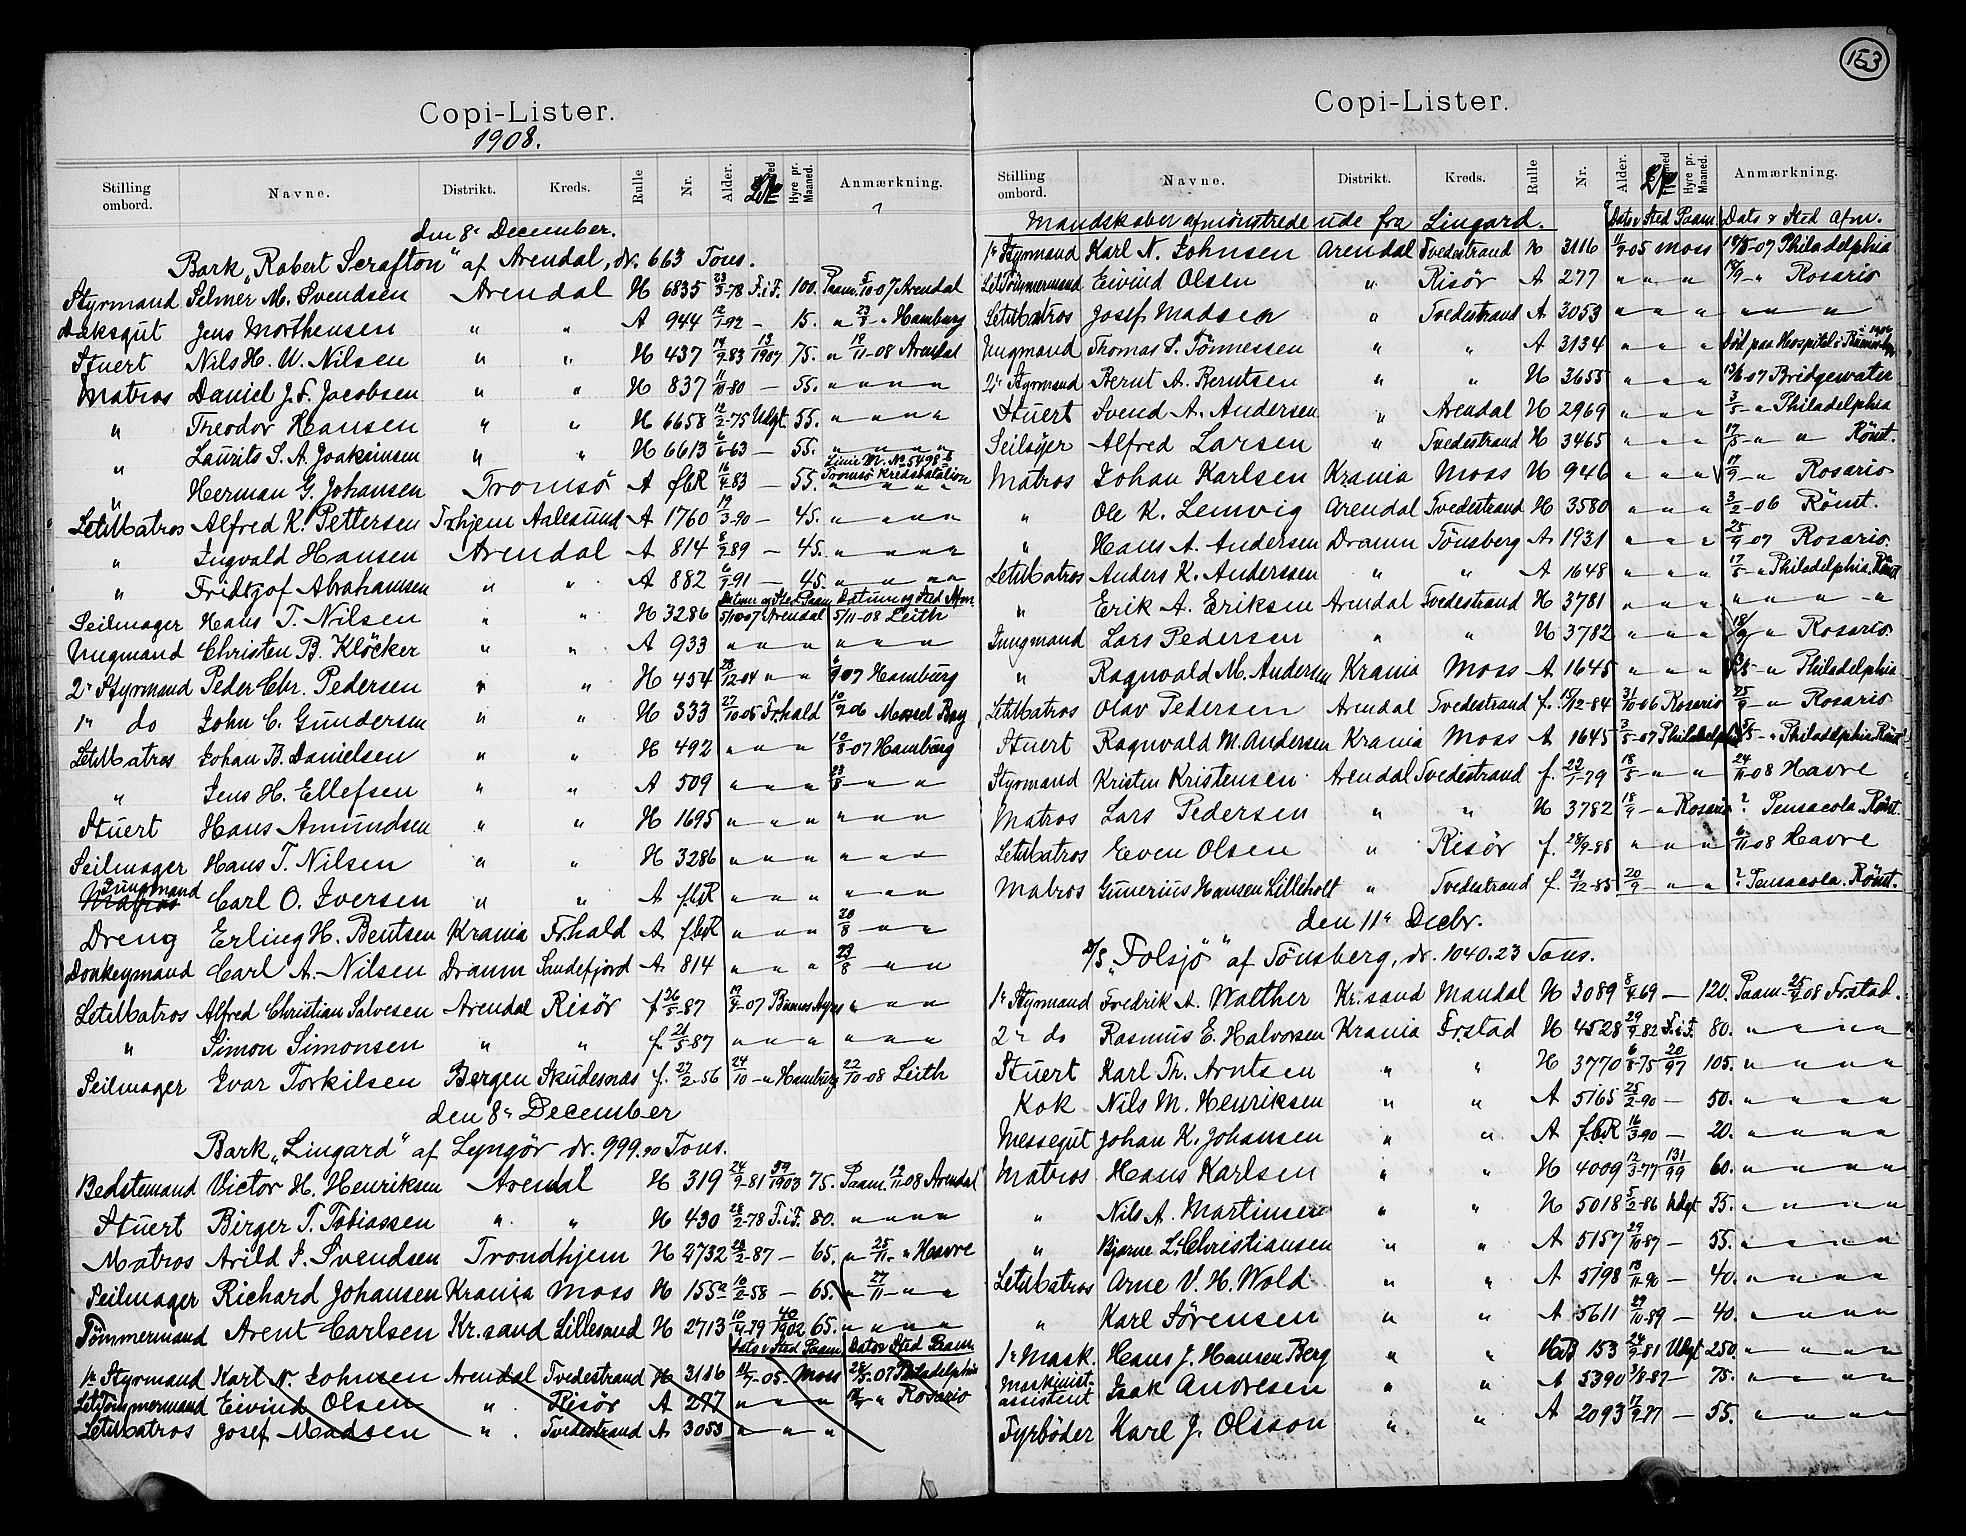 Copi-Lister.
1908.
Stilling ombord. Navne. Distrikt. Kreds. Rulle Nr. Alder. Hyre pr. Maaned. Anmærkning.
den 8de December.
Bark "Robert Scrafton" af Arendal, dr. 663 Tons.
Styrmand Selmer M. Svendsen Arendal H 6835 23/3-78 F.i.F. 100. Paam. 5/10-07 Arendal
Dæksgut Jens Morthensen " " A 944 12/1-92 — 15. " 23/8 - " Hamburg
Stuert Nils H. W. Nilsen " " H 437 19/9-83 13/1907 75. " 19/11-08 Arendal
Matros Daniel J. F. Jacobsen " " H 837 11/10-80 — 55. " " " "
" Theodor Hansen " " H 6658 12/2-75 Udgt 55. " " " "
" Laurits S. A. Joakimsen " " H 6613 6/6-63 — 55. " " " "
" Herman G. Johansen Tromsö A f.b.R 16/4-83 — 55. Linie M. No 5498 Tromsö Kredsbatalion
LetMatros Alfred K. Pettersen Trhjem Aalesund A 1760 19/3-90 — 45. " " " "
" Ingvald Hansen Arendal A 814 8/9-89 — 45. " " " "
" Fridtjof Abrahamsen " " A 882 6/7-91 — 45. " " " "
Datum og Sted Paam Datum og Sted Afm.
Seilmager Hans T. Nilsen " " H 3286 5/10-07 Arendal 5/11-08 Leith
Ungmand Christen B. Klöcker " " A 933 " " " " " "
2n Styrmand Peder Chr. Pedersen " " H 454 28/12-04 " " 07 Hamburg
1n do John C. Gundersen " " H 333 27/10-05 Frhald 10/2-06 Mossel Bay
LetMatros Johan B. Danielsen " " H 492 " " " 10/8-07 Hamburg
" Jens H. Ellefsen " " A 509 " " " 23/8 - " "
Stuert Hans Amundsen " " H 1695 " " " " " "
Seilmager Hans T. Nilsen " " H 3286 " " " " " "
Jungmand Matros Carl O. Iversen " " A f.b.R " " " " " "
Dreng Erling H. Bentsen Krania Frhald A f.b.R " " " 20/8 " "
Donkeymand Carl A. Nilsen Dramn Sandefjord A 814 " " " 23/8 " "
LetMatros Alfred Christian Salvesen Arendal Risör f. 26/5-87 19/4-07 Buenos Ayres " " "
" Simon Simonsen " " f. 21/5-87 " " " " " "
Seilmager Ivar Torkilsen Bergen Skudesnæs f. 27/2-56 24/10 - " Hamburg 22/10-08 Leith
den 8de December
Bark "Lingard" af Lyngör dr. 999.90 Tons.
Bedstemand Victor H. Henriksen Arendal H 319 24/9-81 59/1903 75. Paam. 19/11-08 Arendal
Stuert Birger T. Tobiassen " " H 430 28/2-78 F.i.F. 80. " " " "
Matros Arild J. Svendsen Trondhjem H 2732 28/2-87 — 65. " 25/11 - " Havre
Seilmager Richard Johansen Krania Moss H 155a 10/2-58 — 65. " 27/11 " "
Tömmermand Arent Carlsen Kr.sand Lillesand H 2713 10/4-79 40/1902 65. " " " "
Dato & Sted Paam Dato & Sted Fram.
1n Styrmand Karl N. Johnsen Arendal Tvedestrand H 3116 11/9-05 Moss 28/5-07 Philadelphia
LetTömmermand Eivind Olsen " Risör A 277 " " " " Rosario
LetMatros Josef Madsen " Tvedestrand A 3053 " " "
153
Copi-Lister.
Stilling ombord. Navne. Distrikt. Kreds. Rulle Nr. Alder. Hyre pr. Maaned. Anmærkning.
Mandskaber afmönstrede ude fra Lingard. Dato & Sted Paam Dato & Sted Afm.
1n Styrmand Karl N. Johnsen Arendal Tvedestrand H 3116 11/9-05 Moss 07 Philadelphia
LetTömmermand Eivind Olsen " Risör A 277 " " " " Rosario
LetMatros Josef Madsen " Tvedestrand A 3053 " " " " " "
Ungmand Thomas S. Tönnessen " " A 3134 " " " Död paa Hospital i
2n Styrmand Bernt A. Berntsen " " H 3655 " " " 07 Bridgewater
Stuert Svend A. Andersen " Arendal H 2969 " " " 3/5 - " Philadelphia
Seilsyer Alfred Larsen " Tvedestrand H 3465 " " " 17/5 - " " Römt.
Matros Johan Karlsen Krania Moss H 946 " " " 17/9 - " Rosario
" Ole K. Lemvig Arendal Tvedestrand H 3580 " " " 3/2-06 Römt.
" Hans A. Andersen Dramn Tönsberg A 1931 " " " 25/9 07 Rosario.
LetMatros Anders K. Anderssen " " A 1648 " " " 17/5 - " Philadelphia Römt
" Erik A. Eriksen Arendal Tvedestrand H 3781 " " " " " " "
Jungmand Lars Pedersen " " H 3782 " " " 18/9 " Rosario.
" Ragnvald M. Andersen Krania Moss A 1645 " " " " Philadelphia
LetMatros Olav Pedersen Arendal Tvedestrand f. 15/12-84 31/10-06 Rosario 25/9 - " Rosario
Stuert Ragnvald M. Andersen Krania Moss A 1645 3/5-07 Philadelphia " Philadelphia Römt
Styrmand Kristen Kristensen Arendal Tvedestrand f. 22/1-79 18/5 " " 24/11-08 Havre
Matros Lars Pedersen " " H 3782 18/9 - " Rosario ? Pensacola. Römt.
LetMatros Even Olsen " Risör f. 28/9-88 " " " 6/11-08 Havre
Matros Gunerius Hansen Lilleholt " Tvedestrand f. 21/12-85 20/9 " " ? Pensacola. Römt.
den 11te Decbr.
D/S "Folsjö" af Tönsberg, dr. 1040.23 Tons.
1n Styrmand Fredrik A. Walther Kr.sand Mandal H 3089 8/4-69 — 120. Paam. 08 Frstad.
2n do Rasmus E. Halvorsen Krania Frstad H 4528 29/9-82 F.i.F. 80. " " " "
Stuert Karl Th. Arntsen " " H 3770 6/8-75 20/97 105. " " " "
Kok Nils M. Henriksen " " A 5165 25/2-90 — 50. " " " "
Messegut Johan K. Johansen " " A f.b.R 16/3-90 — 20. " " " "
Matros Hans Karlsen " " H 4009 12/3-77 131/99 60. " " " "
" Nils A. Martinsen " " H 5018 5/2-86 Udgt 55. " " " "
" Bjarne L. Christiansen " " A 5157 29/10-87 — 55. " " " "
LetMatros Arne V. H. Wold " " A 5198 18/11-90 — 40. " " " "
" Karl Sörensen " " A 5611 29/10-89 — 40. " " " "
1n Mask. Hans J. Hansen Berg " " 153 24/9-81 Udgt 250. " " " "
Maskinist-assistent Isak Andresen " " A 5390 3/8-87 — 75. " " " "
Fyrböder Karl J. Olsson " " A 2093 17/9-77 — 55. " " " "